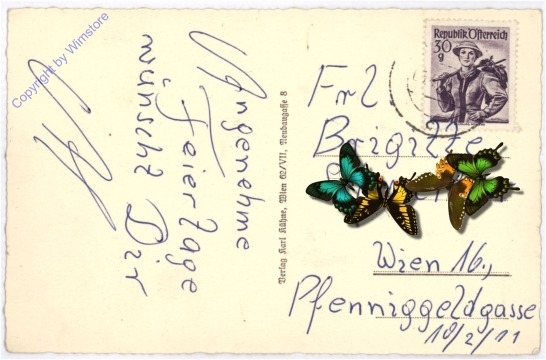 Copyright by Wimstore
Angenehme
Feiertage
wünscht Dir
Verlag Karl Kühne, Wien 62/VII, Neubaugasse 8
Republik Österreich
30
g
Frl.
Brigitte
Wien 16.,
Pfenniggeldgasse
10/2/11